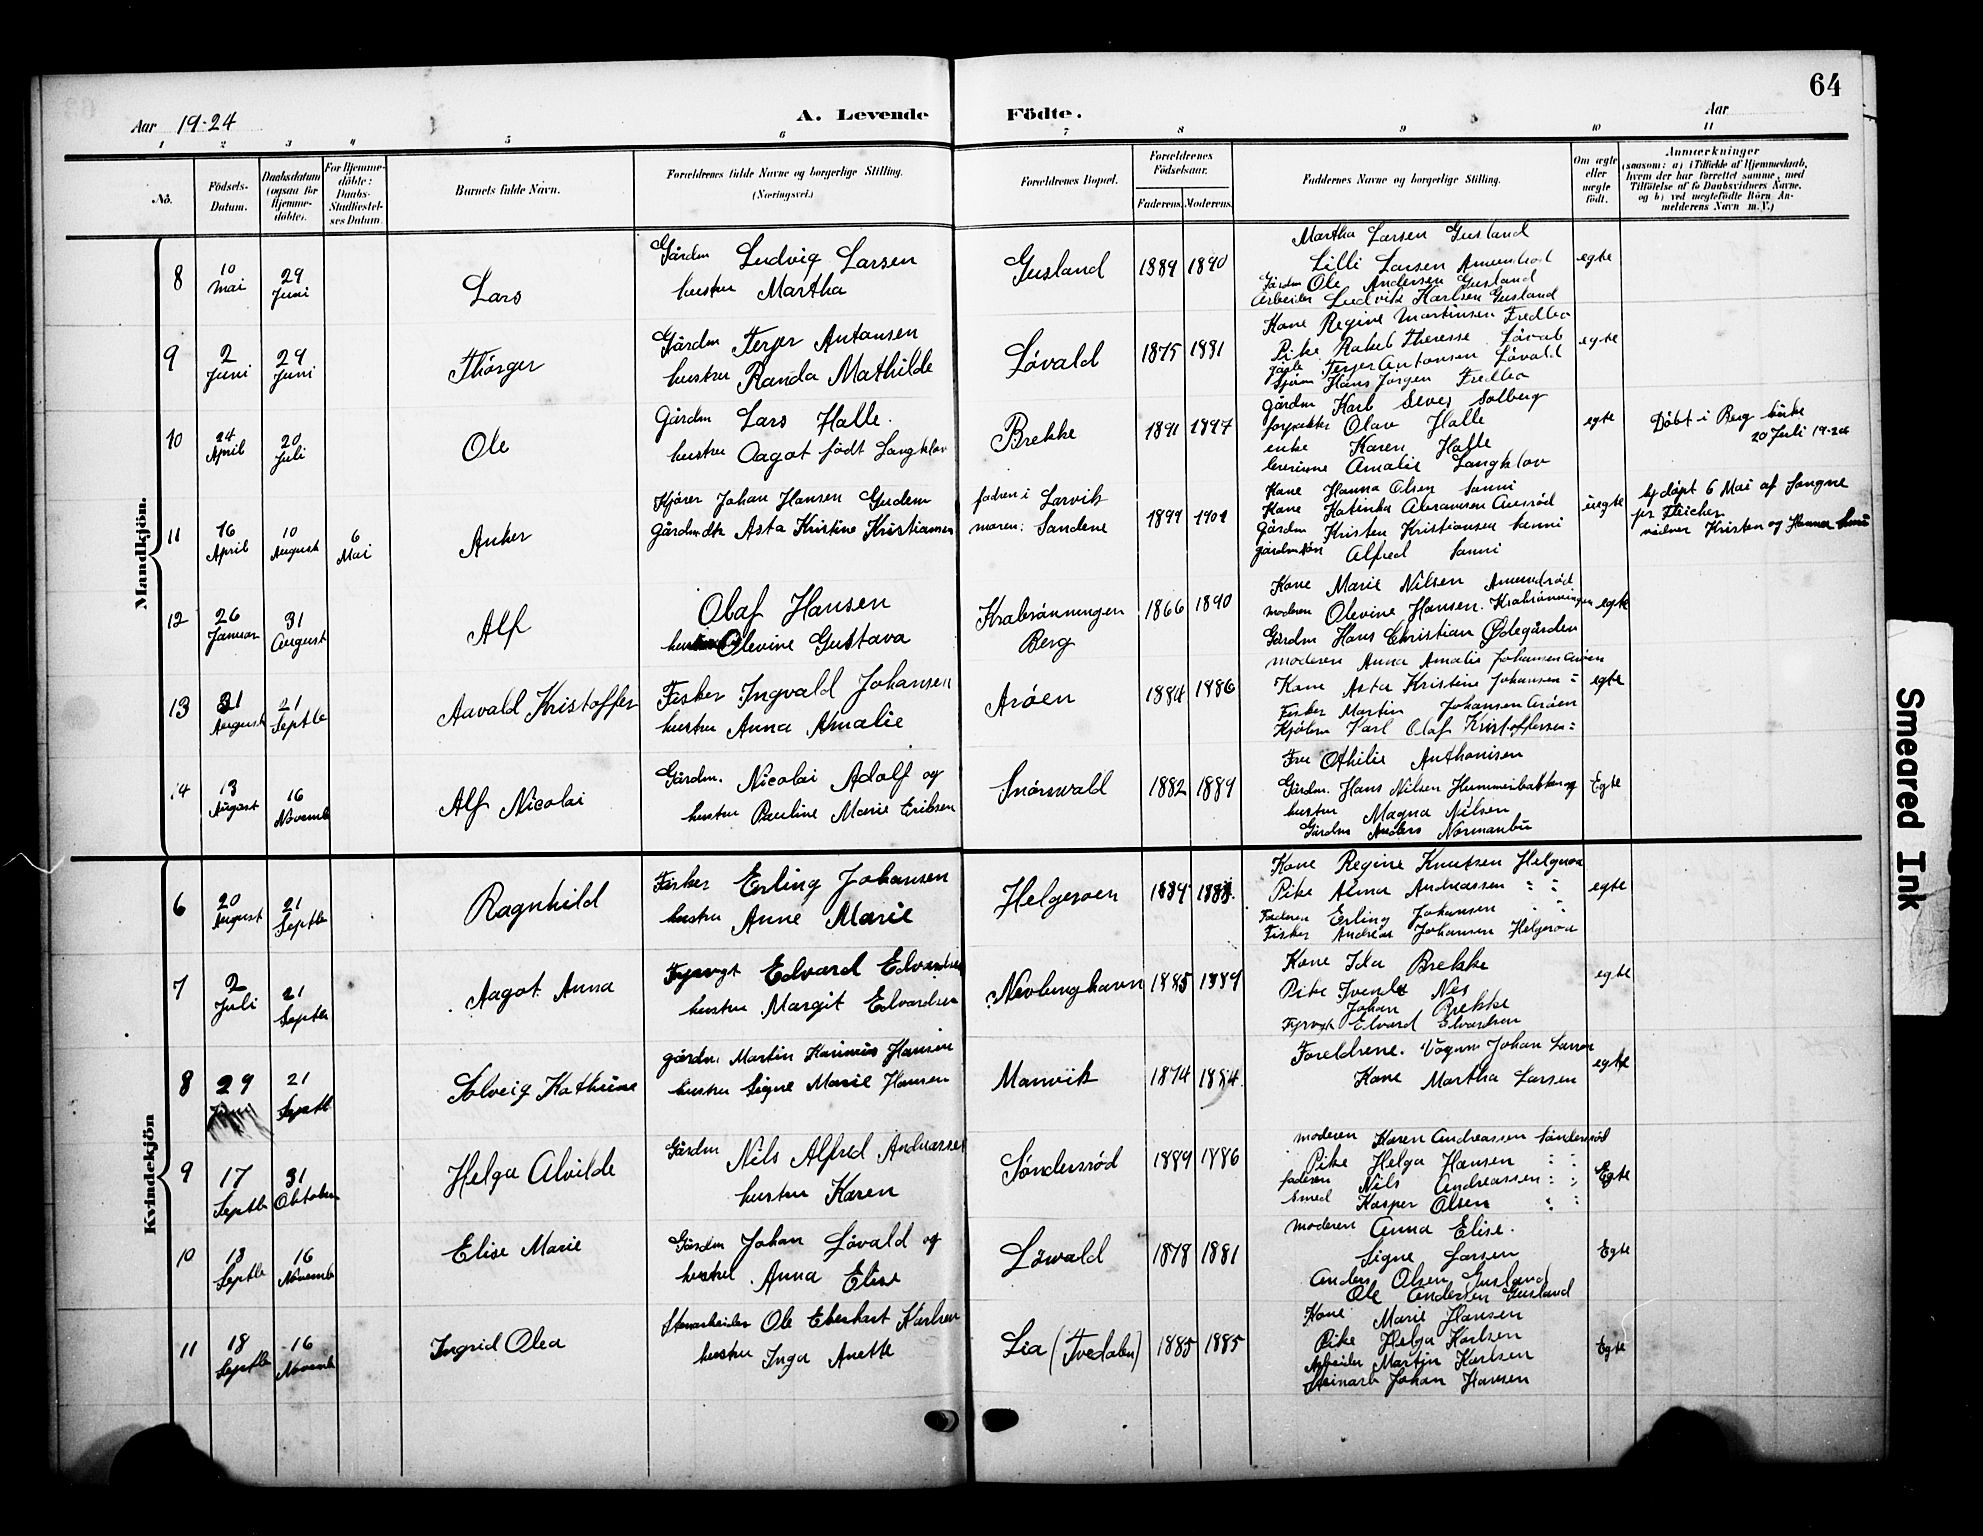 64
Aar 19-24
A. Levende Födte.
Aar
1 2 3 4 5 6 7 8 9 10 11
No.
Födsels-Datum.
Daabsdatum (ogsaa for Hjemmedöbte).
For Hjemmedöbte: Daabs-Stadfæstelses Datum.
Barnets fulde Navn.
Forældrenes fulde Navne og borgerlige Stilling. (Næringsvei.)
Forældrenes Bopæl.
Forældrenes Födselsaar.
Faderens. Moderens.
Faddernes Navne og borgerlige Stilling.
Om ægte eller uægte födt.
Anmærkninger
(saasom: a) i Tilfælde af Hjemmedaab, hvem der har forrettet samme, med Tilföielse af to Daabsvidners Navne, og b) ved uegtefödte Börn Anmelderens Navn m. V.)
Mandkjön.
8
10 Mai
29 Juni
Lars
Gårdm Ludvig Larsen
hustru Martha
Gusland
1889 1890
Martha Larsen Gusland
Lilli Larsen Amundrød
Gårdm Ole Andersen Gusland
Arbeider Ludvik Karlsen Gusland
egte
9
2 Juni
29 Juni
Thorger
Gårdm Terjer Antonsen
hustru Randa Mathilde
Løvald
1875 1881
Kone Regine Martinsen
Pike Rakel Therese Løvald
Terjer Antonsen Løvald
Hans Jørgen
egte
10
24 April
20 Juli
Ole
Gårdm Lars Halle.
hustru Aagot født Langklov
Brekke
1891 1897
Gårdm Karl Sever Solberg
forpakter Olav Halle
enke Karen Halle
Amalie Langklov
egte
Döbt i Berg kirke
20 Juli 19-24
11
16 April
10 August
6 Mai
Anker
Kjører Johan Hansen Gudem
Gårdmdtr Asta Kristine Kristiansen
fadren i Larvik
moren: Sandene
1899 1901
Kone Hanna Olsen Sanni
Kone Katinka Abramsen
Gårdm Kristen Kristiansen Sanni
gårdm Søn Alfred Sanni
uegte
hj döpt 6 Mai af Songne
pr Fleicher
vidner Kristen og Hanna
12
26 Januar
31 August
Alf
Olaf Hansen
hustru Olevine Gustava
Krabrönningen
Berg
1866 1890
Kone Marie Nilsen Amundrød
moderen Olevine Hansen. Krabrönningen
Gårdm Hans Christian Ødegården
egte
13
31 August
21 Septbr
Aavald Kristoffer
Fisker Ingvald Johansen
hustru Anna Amalie
Arøen
1884 1886
moderen Anna Amalie Johansen Arøen
Kone Asta Kristine Johansen :
Fisker Martin Johansen Arøen
Karl Olaf Kristoffersen :
egte
14
13 August
16 Novemb
Alf Nicolai
Gårdm. Nicolai Adolf og
hustru Pauline Marie Eriksen
Snörnvald
1882 1889
Fru Othilie Anthonisen
Gårdm. Hans Nilsen Hummerbakken og
hustru Magna Nilsen
Gårdm Anders
Egte
Kvindekjön
6
20 August
21 Septbr
Ragnhild
Fisker Erling Johansen
hustru Anne Marie
Helgeroen
Kone Regine Knutsen Helgeroa
Pike Alma Andreassen " "
Faderen Erling Johansen " "
Fisker Andreas Johansen Helgeroa
egte
7
2 Juli
21 Septbr
Aagot. Anna
Fyrvogt Edvard Edvardsen
hustru Margit Edvardsen
Nevlunghavn
1885 1889
Kone Ida Brekke
Pike Nes
Johan Brekke
Fyrvogt Edvard Edvardsen
egte
8
29
21 Septb
Solveig Kathrine
gårdm. Martin Hansen
hustru Signe Marie Hansen
Manvik
1874 1884
Foreldrene. Vognm Johan Larsen
Kone Martha Larsen
egte
9
17 Septbr
31 Oktober
Helga Alvilde
Gårdm Nils Alfred Andreassen
hustru Karen
Sønderrød
1889 1886
moderen Karen Andreassen Sønderrød
Pike Helga Hansen : :
faderen Nils Andreassen : :
Smed Kasper Olsen : :
Egte
10
13 Septbr
16 Novemb
Elise Marie
Gårdm Johan Løvald og
hustru Anna Elise
Løwald
1878 1881
moderen Anna Elise.
Signe Larsen
Anders Olsen Gusland
Ole Andersen Gusland
Egte
11
18 Septbr
16 Novemb
Ingrid Olea
Stenarbeider Ole Eberhart Karlsen
hustru Inga Anette
Lia (Tvedalen)
1885 1885
Kone Marie Hansen
Pike Helga Karlsen
Arbeider Martin Karlsen
Steinarb Johan Hansen
Egte
Smeared Ink